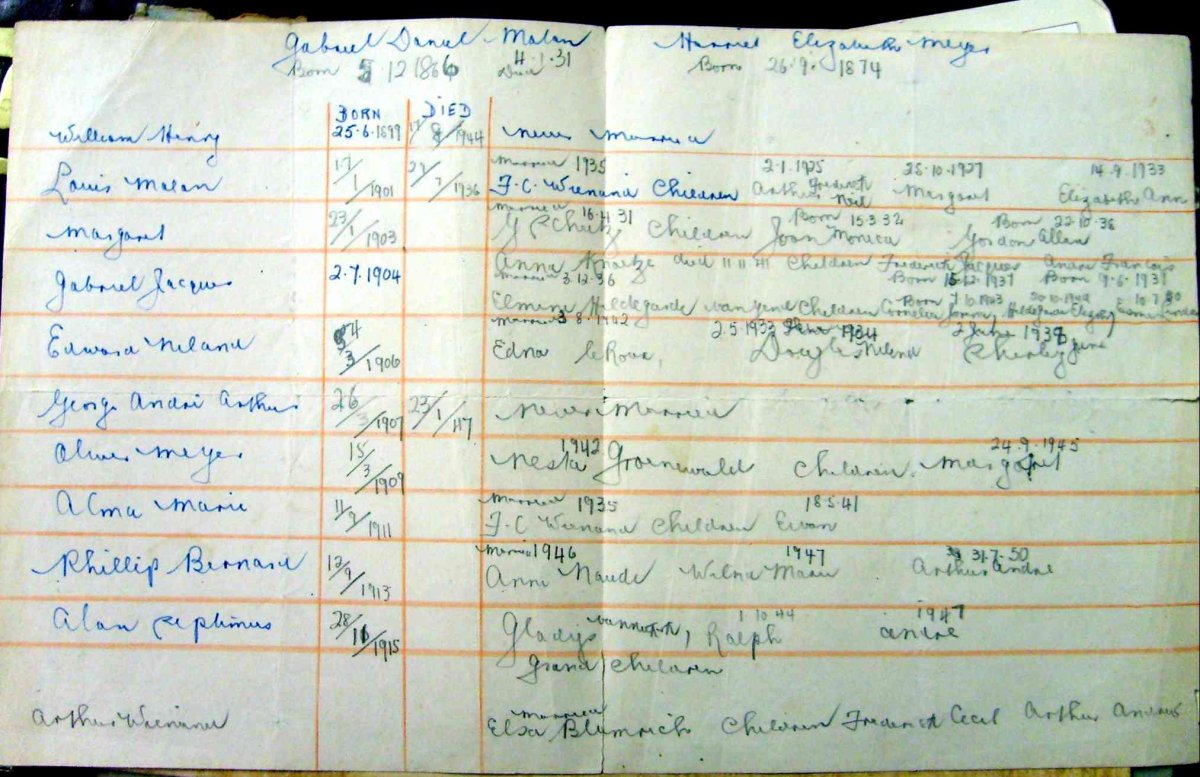 Gabriel Daniel Malan Harriet Elizabeth Meyer
Born 5 12 1866 Died 4.1.31 Born 26.9. 1874
BORN DIED
William Henry 25.6.1899 /1944 never married
married 1935 2.1.1925 25.10.1927 14.9.1933
Louis Malan 17/1/1901 /7/1936 F.C. Wienand Children Arthur Frederick Neil Margaret Elizabeth Ann
married 16.4.31 Born 15.3.32 Born 22.10.36
Margaret 23/1/1903 Children Joan Monica Gordon Allan
Anna died 11.11.41 Children Frederick Jacques Andre Francois
Gabriel Jacques 2.7.1904 married 3.12.36 Born 15.12.1937 Born 9.6.1931
Born 7.10.1943
Elmena Hildegarde van Children Cornelia
married 3.8.1942 2.5.193 1934 2 June 1937
Edward Neland /3/1906 Edna le Roux, Neland Shirley June
George Andre Arthur 26/3/1907 23/1/47 never married
1942 24.9.1945
Oliver Meyer 15/3/1909 Nesta Groenewald Children Margaret
married 1935 18.5.41
Alma Marie 11/9/1911 F.C Wienand Children Ewan
married 1946 1947 31.7.50
Phillip Bernard 12/9/1913 Ann Naude Wilna Marie Arthur Andre
1.10.44 1947
Alan Septimus 28/11/1915 Gladys, Ralph andre
Grand Children
married
Arthur Wienand Elsa Blumrich Children Frederick Cecil Arthur Andries